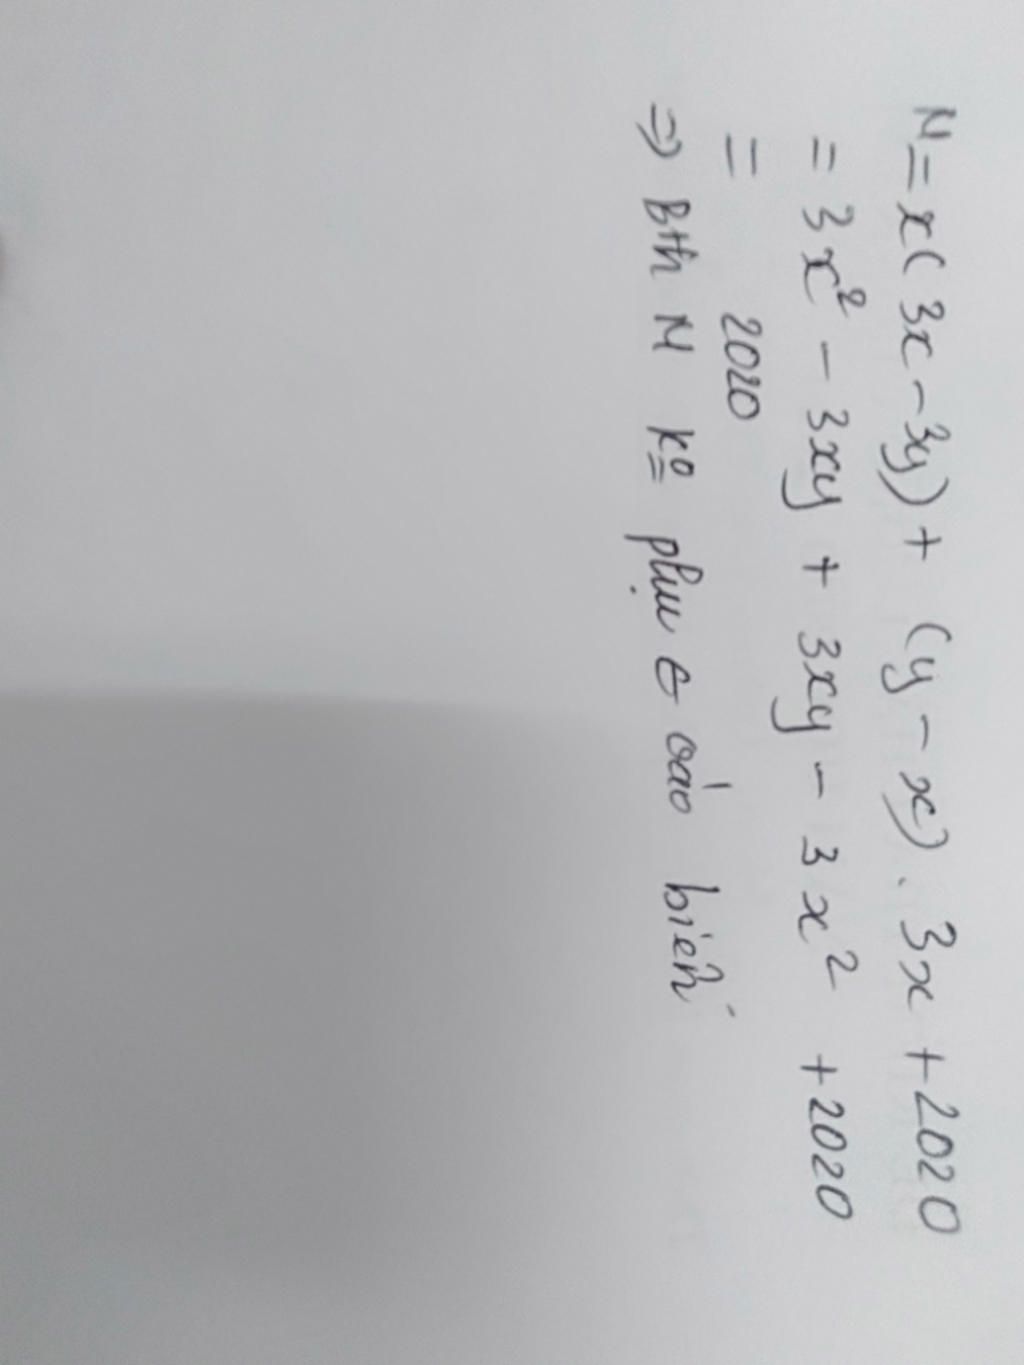 N = x(3x - 3y) + (y - x). 3x + 2020
= 3x² - 3xy + 3xy - 3x² + 2020
= 2020
⇒ Bth N ko phụ ϵ vào biến